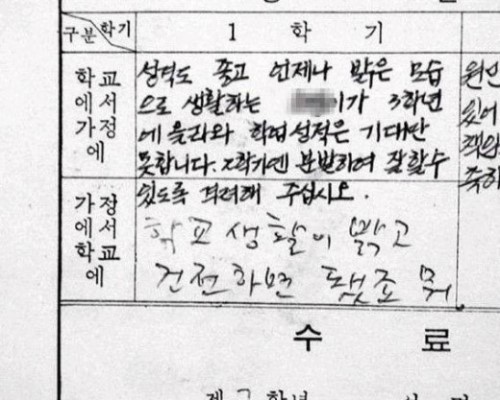 구분 학기
1 학 기
학교
에서
가정
에
성덕도 좋고 언제나 밝은 모습
으로 생활하는 이가 3학년
에 올라와 학업성적은 기대만
못합니다. 2학기엔 분발하여 잘할수
있도록 격려해 주십시오.
가정
에서
학교
에
학교생활이 밝고
건전하면 됐죠 뭐
원인
있어
수 료
제 3 학년